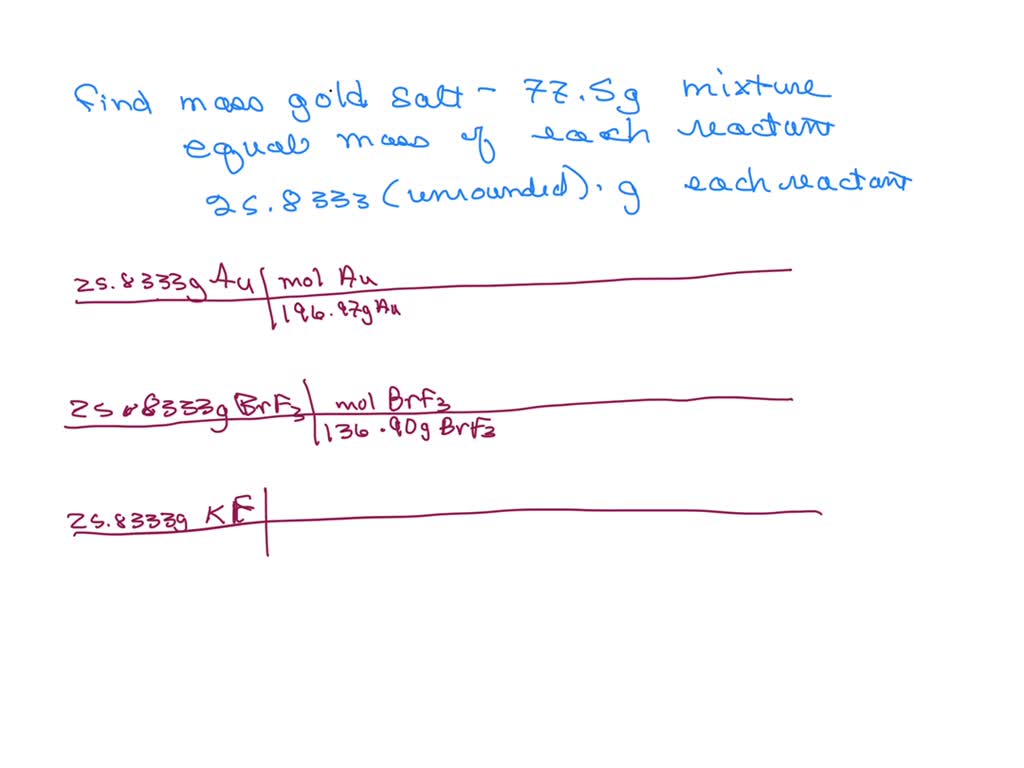 find mass gold salt - 77.5g mixture
equal mass of each reactant
25.8333 (unrounded). g each reactant
25.8333g Au | mol Au
196.97g Au
25.8333g BrF3 | mol BrF3
136.90g BrF3
25.8333g KF